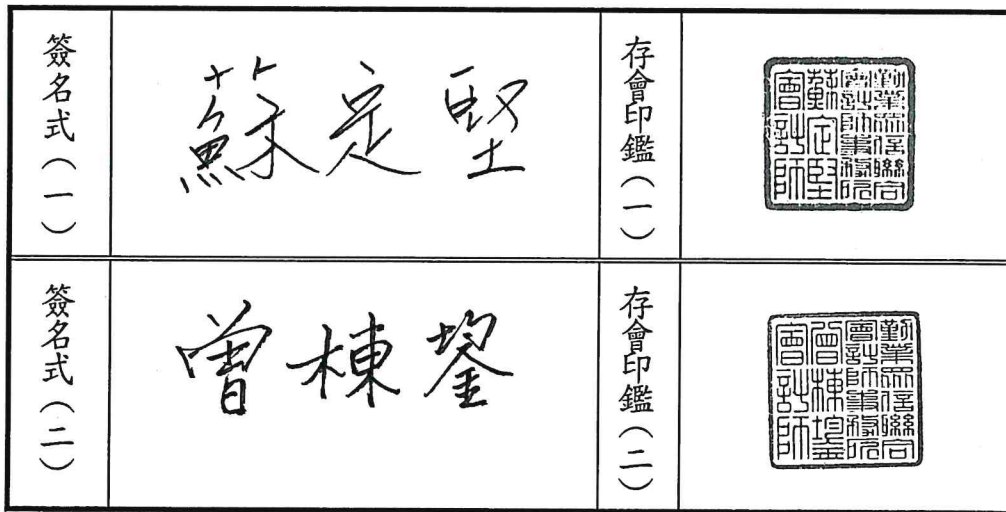 簽名式(一)
蘇定堅
存會印鑑(一)
勤業眾信聯合
會計師事務所
蘇定堅
會計師
簽名式(二)
曾棟鋆
存會印鑑(二)
勤業眾信聯合
會計師事務所
曾棟鋆
會計師